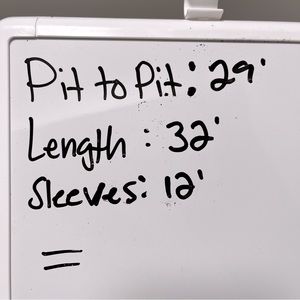 Pit to Pit: 29'
Length : 32'
Sleeves: 12'
=